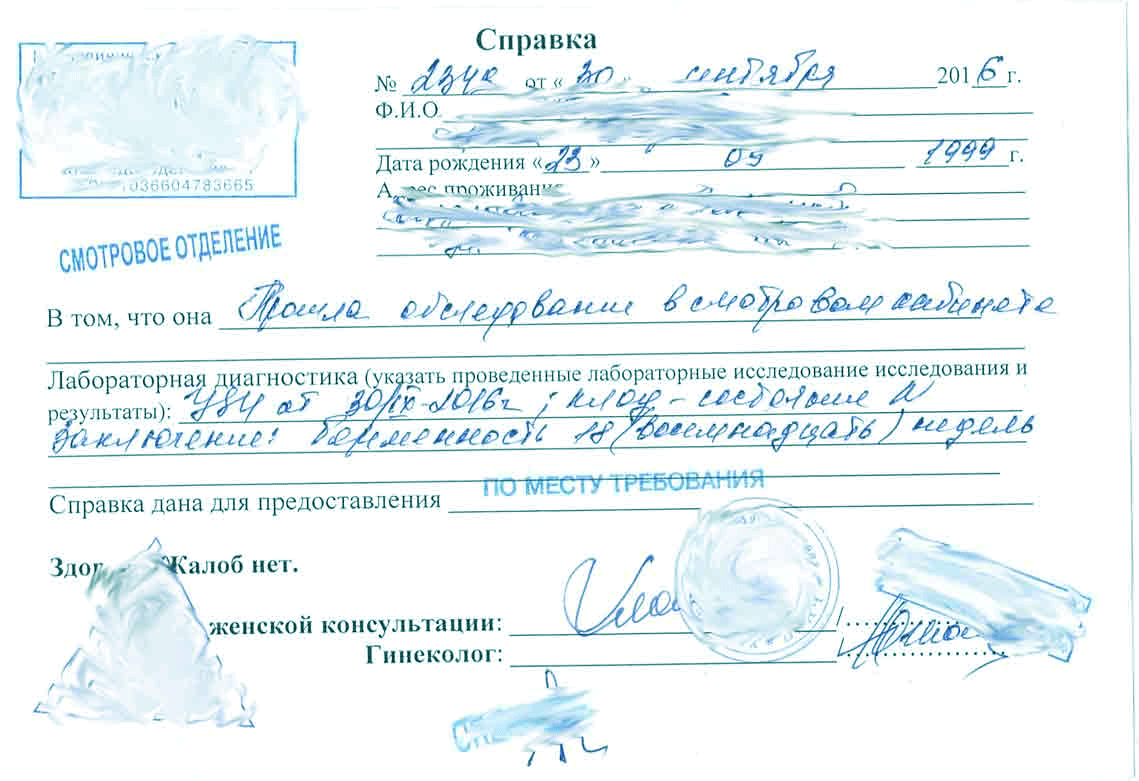 Справка
№ 2349 от « 30 » сентября 2016 г.
Ф.И.О.
Дата рождения «23» 09 1999 г.
1036604783665
СМОТРОВОЕ ОТДЕЛЕНИЕ
В том, что она Прошла обследование в смотровом кабинете
Лабораторная диагностика (указать проведенные лабораторные исследование исследования и
результаты): УЗИ от 30/IX-2016г ; плод - состояние N
Заключение: беременность 18 (восемнадцать) недель
Справка дана для предоставления ПО МЕСТУ ТРЕБОВАНИЯ
Жалоб нет.
женской консультации:
Гинеколог: